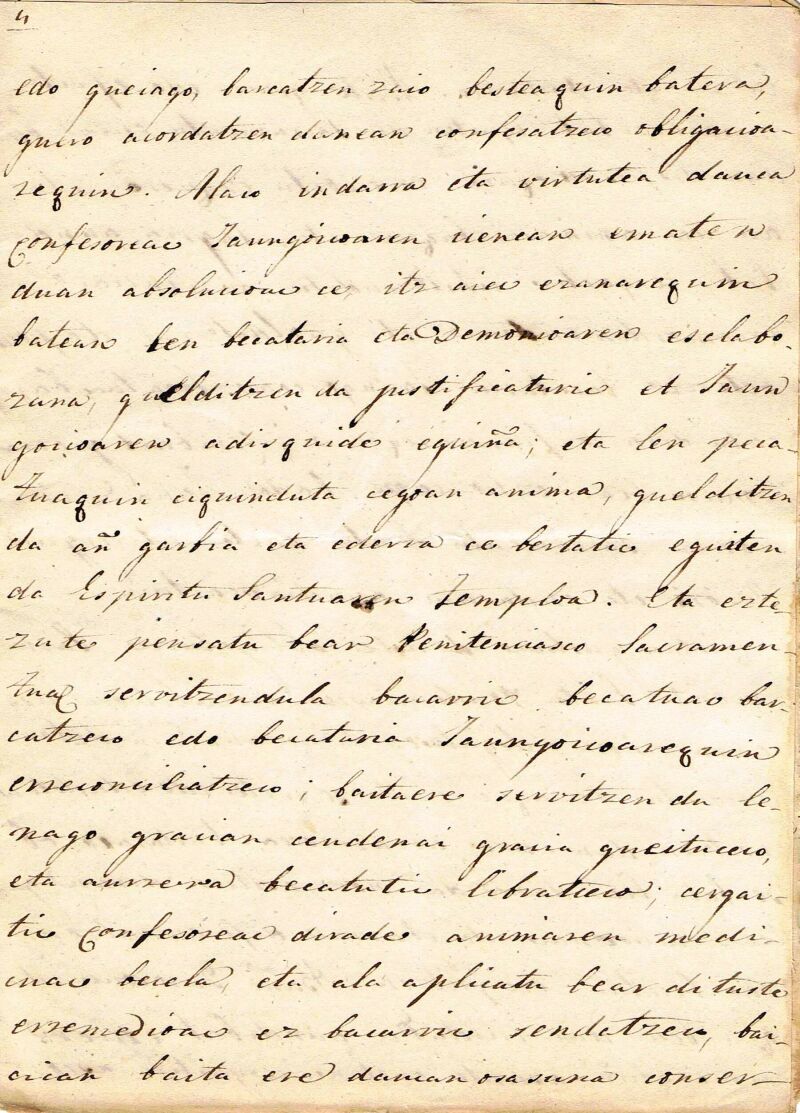 4
edo gueiago, barcatzen zaio besteaquin batera,
guero acordatzen danean confesatzeco obligacioa-
requin. Alaco indarra eta virtutea dauca
confesoreac Jaungoicoaren icenean ematen
duan absolucioac ce, itz aiec esanarequin
batean len becataria eta Demonioaren esclabo-
zana, guelditzen da justificaturic et Jaun
goicoaren adisquide eguiña; eta len peca-
tuaquin ciquinduta cegoan anima, guelditzen
da añ garbia eta ederra ce bertatic eguiten
da Espiritu Santuaren temploa. Eta ezte-
zute pensatu bear Penitenciaco Sacramen-
tuac servitzenduła bacarric becatuac bar-
catzeco edo becataria Jaungoicoarequin
erreconciliatzeco; baitaere servitzen du le-
nago gracian ceudenai gracia gueituceco,
eta aurrera becatutic libratceco; cergai-
tic confesoreac dirade animaren medi-
cuac becela, eta ala aplicatu bear dituste
erremedioac ez bacarric sendatzeco, bai-
cican baita ere daucan osasuna conser-